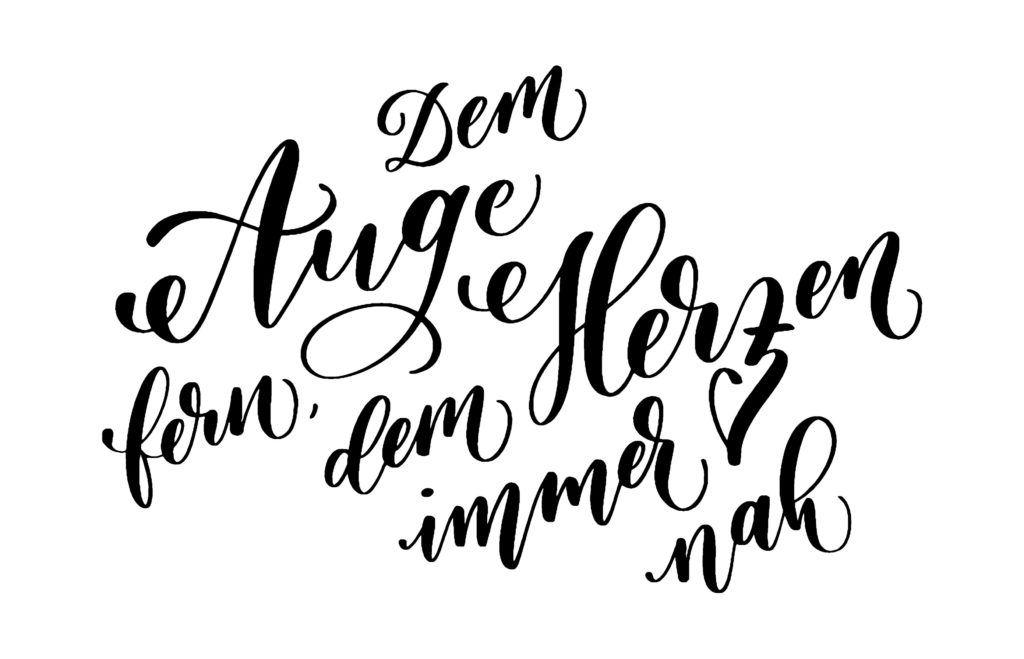 Dem
Auge Herzen
fern, dem
immer
nah